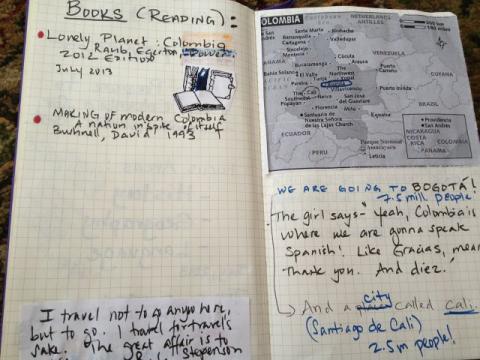 BOOKS (READING):
Lonely Planet: Colombia
Raub, Egerton, Power.
2012 Edition
July 2013
MAKING of modern Colombia
a nation in spite of itself
Bushnell, David 1993
I travel not to go anywhere,
but to go. I travel for travel's
sake. The great affair is to
Stevenson
COLOMBIA
NETHERLANDS
ANTILLES
Santa Marta
Riohacha
Barranquilla
Cartagena
Valledupar
VENEZUELA
Bucaramanga
Cúcuta
El Valle
Tunja
The Northwest
Puerto
Carreño
Pereira
Cali
Villavicencio
Popayán
Neiva
San José
del Guaviare
Florencia
Mitú
BRAZIL
ECUADOR
PERU
Leticia
Providencia
San Andrés
NICARAGUA
COSTA
RICA
COLOMBIA
PANAMA
WE ARE GOING TO BOGOTÁ!
7.5 mill people!
The girl says- "Yeah, Colombia is
where we are gonna speak
Spanish! Like Gracias, mean
Thank you. And diez."
city
And a place called Cali.
(Santiago de Cali)
2.5 m people!